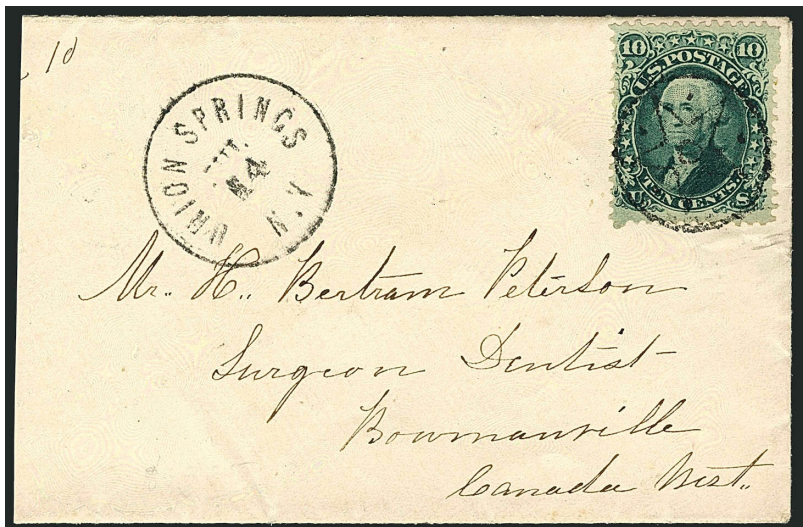 10
UNION SPRINGS N.Y.
4
10 10
U.S. POSTAGE
TEN CENTS
U S
Mr. H. Bertram Peterson
Surgeon Dentist
Bowmanville
Canada West.